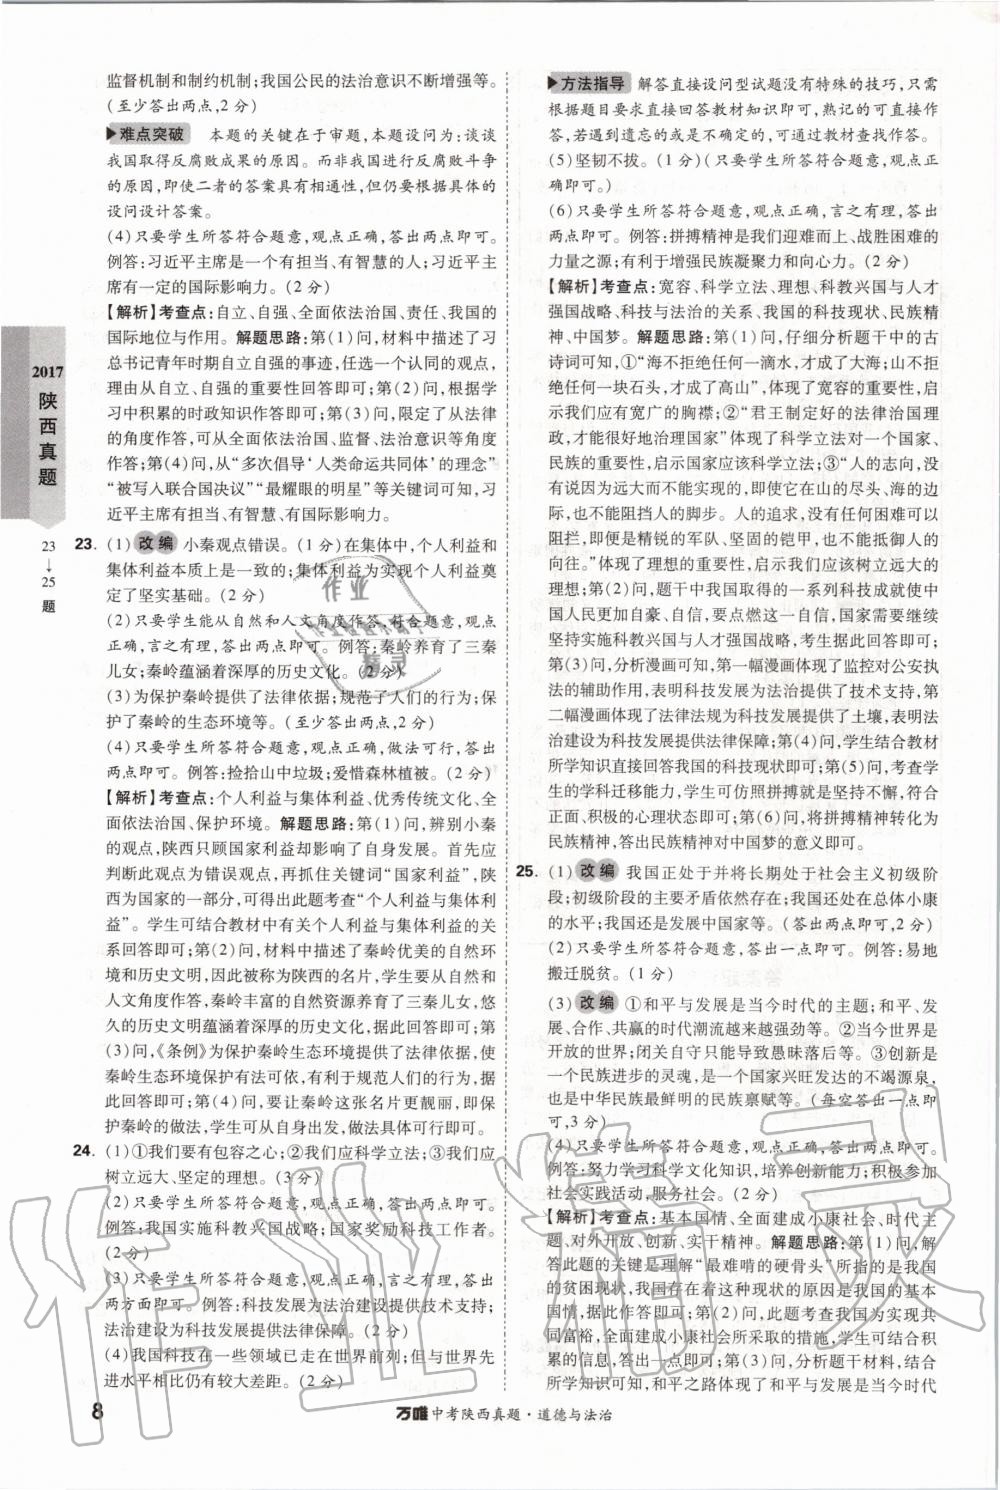 监督机制和制约机制;我国公民的法治意识不断增强等。
(至少答出两点,2 分)
难点突破 本题的关键在于审题,本题设问为:谈谈
我国取得反腐败成果的原因。而非我国进行反腐败斗争
的原因,即使二者的答案具有相通性,但仍要根据具体的
设问设计答案。
(4)只要学生所答符合题意,观点正确,答出两点即可。
例答:习近平主席是一个有担当、有智慧的人;习近平主
席有一定的国际影响力。(2 分)
【解析】考查点:自立、自强、全面依法治国、责任、我国的
国际地位与作用。解题思路:第(1)问,材料中描述了习
总书记青年时期自立自强的事迹,任选一个认同的观点,
理由从自立、自强的重要性回答即可;第(2)问,根据学
习中积累的时政知识作答即可;第(3)问,限定了从法律
的角度作答,可从全面依法治国、监督、法治意识等角度
作答;第(4)问,从“多次倡导‘人类命运共同体’的理念”
“被写入联合国决议”“最耀眼的明星”等关键词可知,习
近平主席有担当、有智慧、有国际影响力。
23. (1) 改编 小秦观点错误。(1 分)在集体中,个人利益和
集体利益本质上是一致的;集体利益为实现个人利益奠
定了坚实基础。(2 分)
(2)只要学生能从自然和人文角度作答,符合题意,观点
正确,言之有理,答出两点即可。例答:秦岭养育了三秦
儿女;秦岭蕴涵着深厚的历史文化。(2 分)
(3)为保护秦岭提供了法律依据;规范了人们的行为;保
护了秦岭的生态环境等。(至少答出两点,2 分)
(4)只要学生所答符合题意,观点正确,做法可行,答出
两点即可。例答:捡拾山中垃圾;爱惜森林植被。(2 分)
【解析】考查点:个人利益与集体利益、优秀传统文化、全
面依法治国、保护环境。解题思路:第(1)问,辨别小秦
的观点,陕西只顾国家利益却影响了自身发展。首先应
判断此观点为错误观点,再抓住关键词“国家利益”,陕
西为国家的一部分,可得出此题考查“个人利益与集体利
益”。学生可结合教材中有关个人利益与集体利益的关
系回答即可;第(2)问,材料中描述了秦岭优美的自然环
境和历史文明,因此被称为陕西的名片,学生要从自然和
人文角度作答,秦岭丰富的自然资源养育了三秦儿女,悠
久的历史文明蕴涵着深厚的历史文化,据此回答即可;第
(3)问,《条例》为保护秦岭生态环境提供了法律依据,使
秦岭生态环境保护有法可依,有利于规范人们的行为,保
护秦岭生态环境;第(4)问,要让秦岭这张名片更靓丽,即保
护秦岭的做法,学生可从自身出发,做法具体可行即可。
24. (1)①我们要有包容之心;②我们应科学立法;③我们应
树立远大、坚定的理想。(3 分)
(2)只要学生所答符合题意,观点正确,答出两点即可。
例答:我国实施科教兴国战略;国家奖励科技工作者。
(2 分)
(3)只要学生所答符合题意,观点正确,言之有理,答出
两方面即可。例答:科技发展为法治建设提供技术支持;
法治建设为科技发展提供法律保障。(2 分)
(4)我国科技在一些领域已走在世界前列;但与世界先
进水平相比仍有较大差距。(2 分)
方法指导 解答直接设问型试题没有特殊的技巧,只需
根据题目要求直接回答教材知识即可,熟记的可直接作
答,若遇到遗忘的或是不确定的,可通过教材查找作答。
(5)坚韧不拔。(1 分)(只要学生所答符合题意,观点正
确即可。)
(6)只要学生所答符合题意,观点正确,言之有理,答出
两点即可。例答:拼搏精神是我们迎难而上、战胜困难的
力量之源;有利于增强民族凝聚力和向心力。(2 分)
【解析】考查点:宽容、科学立法、理想、科教兴国与人才
强国战略、科技与法治的关系、我国的科技现状、民族精
神、中国梦。解题思路:第(1)问,仔细分析题干中的古
诗词可知,①“海不拒绝任何一滴水,才成了大海;山不拒
绝任何一块石头,才成了高山”,体现了宽容的重要性,启
示我们应有宽广的胸襟;②“君王制定好的法律治国理
政,才能很好地治理国家”体现了科学立法对一个国家、
民族的重要性,启示国家应该科学立法;③“人的志向,没
有因为远大而不能达到的,即使它在山的尽头、海的边
际,也不能阻挡人的脚步。人的追求,没有任何困难可以
阻拦,即便是精锐的军队、坚固的铠甲,也不能阻拦人的
向往。”体现了理想的重要性,启示我们应该树立远大的
理想;第(2)问,题干中我国取得的一系列科技成就使中
国人民更加自豪、自信,要实现伟大复兴,国家需要继续
坚持实施科教兴国与人才强国战略,考生据此回答即可;
第(3)问,分析漫画可知,第一幅漫画体现了监控对公安执
法的辅助作用,表明科技发展为法治提供了技术支持,第
二幅漫画体现了法律法规为科技发展提供了土壤,表明法
治建设为科技发展提供法律保障;第(4)问,学生结合教材
所学知识直接回答我国的科技现状即可;第(5)问,考查学
生的学科迁移能力,学生可仿照拼搏就是坚持不懈,符合
正面、积极的心理状态即可;第(6)问,将拼搏精神转化为
民族精神,答出民族精神对中国梦的意义即可。
25. (1) 改编 我国正处于并将长期处于社会主义初级阶
段;初级阶段的主要矛盾依然存在;我国还处在总体小康
的水平;我国还是发展中国家等。(答出两点即可,2 分)
(2)只要学生所答符合题意,答出一点即可。例答:易地
搬迁脱贫。(1 分)
(3) 改编 ①和平与发展是当今时代的主题;和平、发
展、合作、共赢的时代潮流越来越强劲等。②当今世界是
开放的世界;闭关自守只能导致愚昧落后等。③创新是
一个民族进步的灵魂,是一个国家兴旺发达的不竭源泉,
也是中华民族最鲜明的民族禀赋等。(每空答出一点即
可,3 分)
(4)只要学生所答符合题意,观点正确,答出两点即可。
例答:努力学习科学文化知识,培养创新能力;积极参加
社会实践活动,服务社会。(2 分)
【解析】考查点:基本国情、全面建成小康社会、时代主
题、对外开放、创新、实干精神。解题思路:第(1)问,解
答此题的关键是理解“最难啃的硬骨头”所指的是我国
的贫困现状,我国存在着这种现状的原因是我国的基本
国情,据此作答即可;第(2)问,此题考查我国为实现共
同富裕,全面建成小康社会所采取的措施,学生可结合积
累的信息,答出一点即可;第(3)问,分析题干材料,结合
所学知识可知,和平之路体现了和平与发展是当今时代
2017
陕西真题
23
↓
25
题
8
万唯中考陕西真题·道德与法治
作业精灵